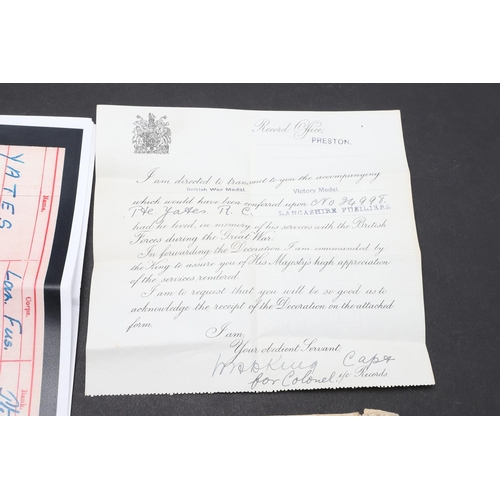 Record Office,
PRESTON.
I am directed to transmit to you the accompanying
British War Medal, Victory Medal,
which would have been conferred upon No 24998.
Pte Yates R. C. LANCASHIRE FUSILIERS.
had he lived, in memory of his services with the British
Forces during the Great War.
In forwarding the Decoration I am commanded by
the King to assure you of His Majesty's high appreciation
of the services rendered.
I am to request that you will be so good as to
acknowledge the receipt of the Decoration on the attached
form.
I am,
Your obedient Servant,
King Capt
for Colonel i/c Records
Name.
YATES
Corps.
Lan. Fus.
Rank.